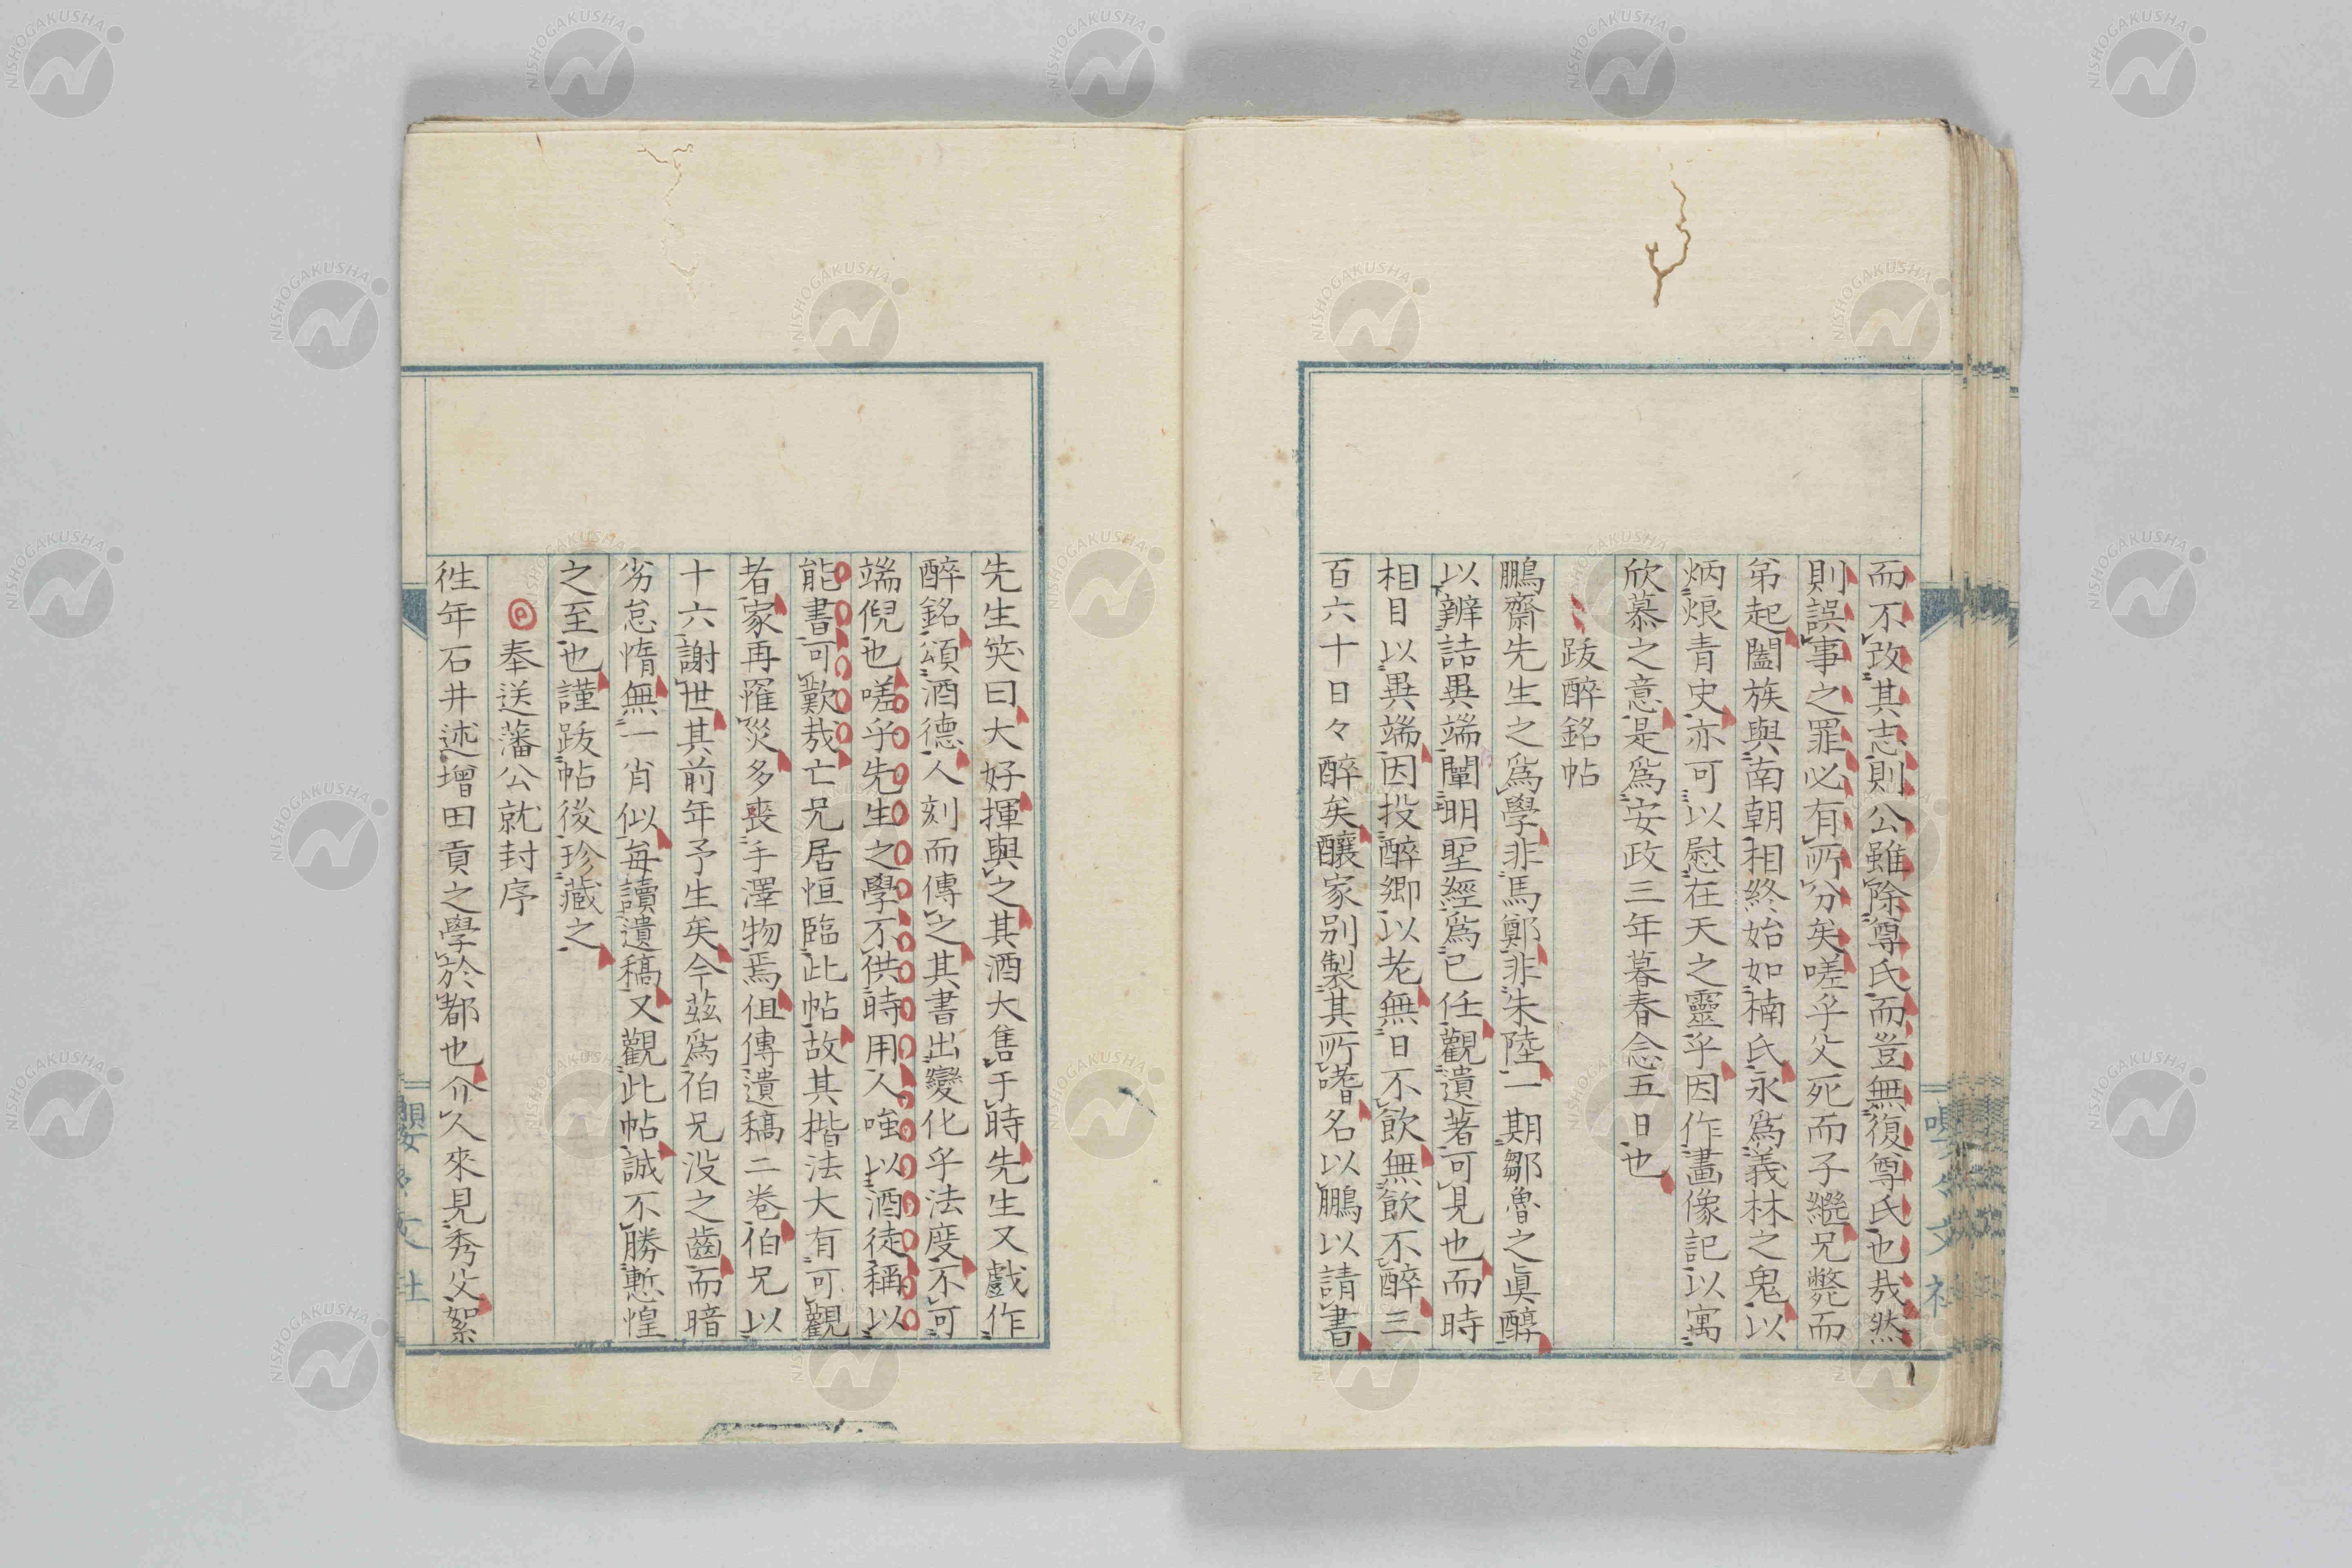 而不改其志則公雖除尊氏而豈無復尊氏也哉然
則誤事之罪必有所分矣嗟乎父死而子繼兄斃而
弟起闔族與南朝相終始如楠氏永爲義林之鬼以
炳烺青史亦可以慰在天之靈乎因作畫像記以寓
欣慕之意是爲安政三年暮春念五日也
跋醉銘帖
鵬齋先生之爲學非馬鄭非朱陸一期鄒魯之眞醇
以辨詰異端闡明聖經爲已任觀遺著可見也而時
相目以異端因投醉鄉以老無日不飲無飲不醉三
百六十日々醉矣釀家别製其所嗜名以鵬以請書
先生笑曰大好揮與之其酒大售于時先生又戲作
醉銘頌酒德人刻而傳之其書出變化乎法度不可
端倪也嗟乎先生之學不供時用人嗤以酒徒稱以
能書可歎哉亡兄居恒臨此帖故其楷法大有可觀
者家再罹災多喪手澤物焉但傳遺稿二卷伯兄以
十六謝世其前年予生矣今茲爲伯兄没之齒而暗
劣怠惰無一肖似每讀遺稿又觀此帖誠不勝慙惶
之至也謹跋帖後珍藏之
奉送藩公就封序
徃年石井述增田貢之學於都也介人來見秀父絮
NISHOGAKUSHA